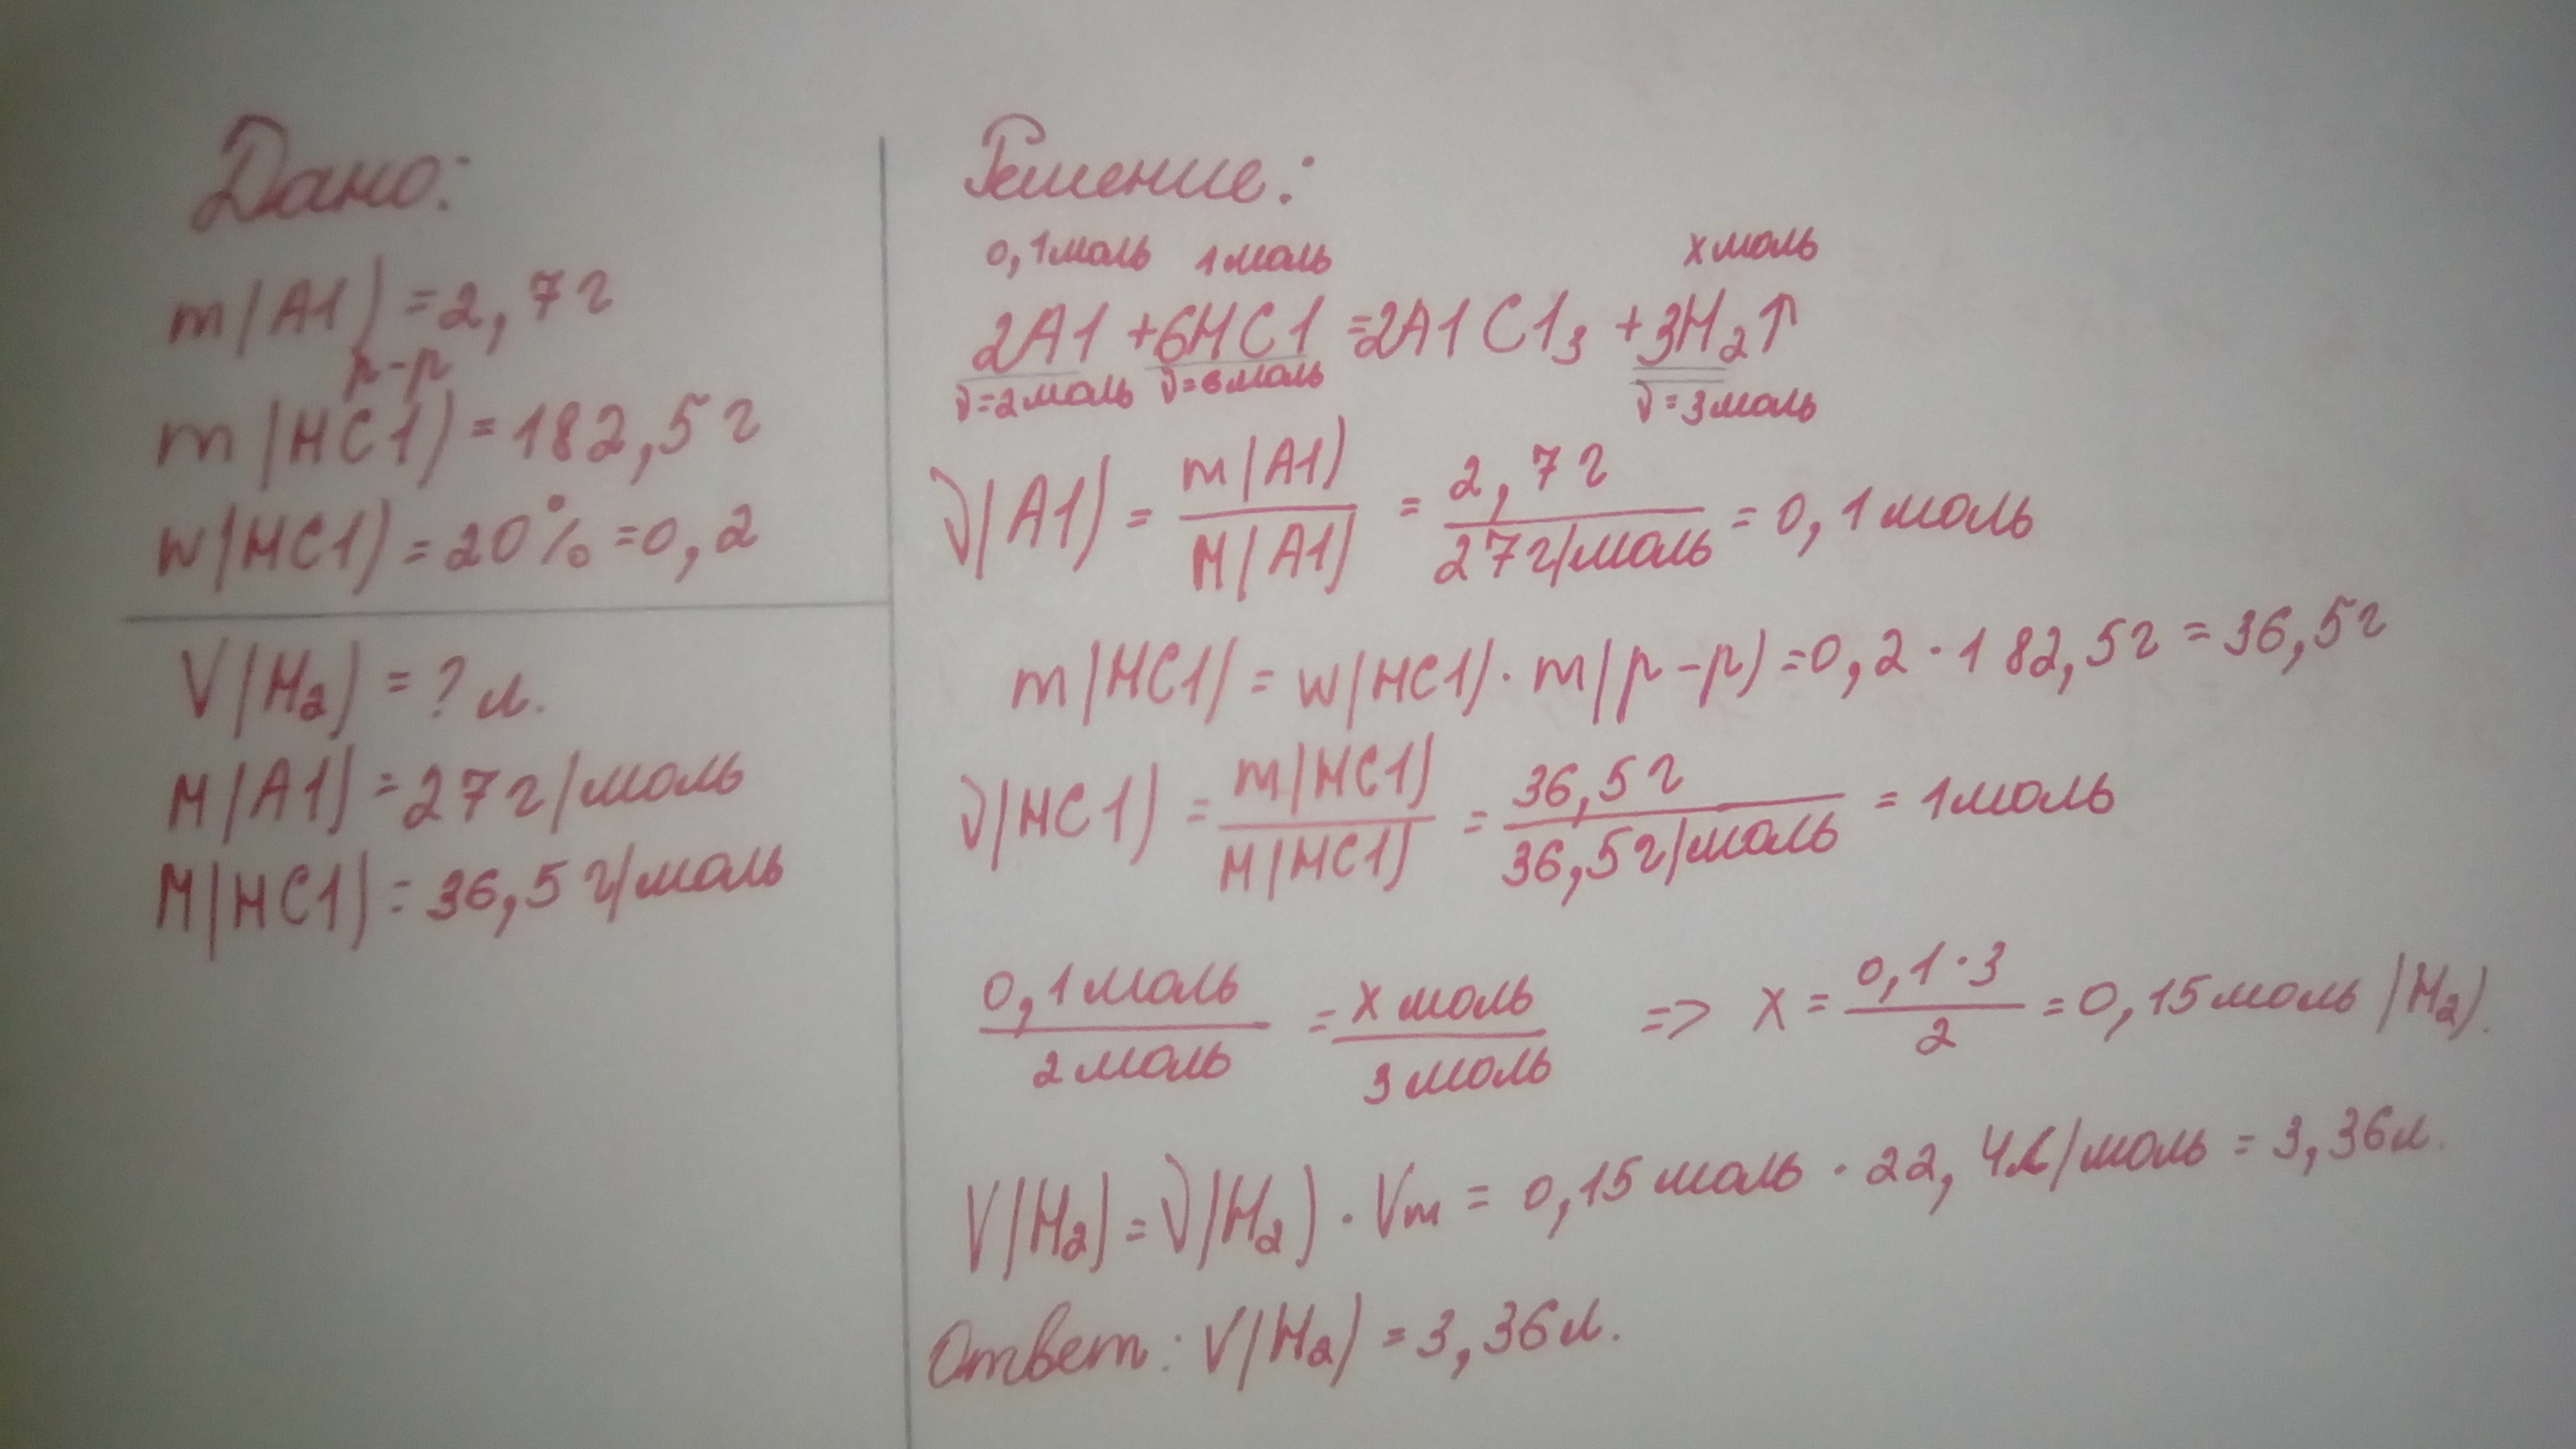 Дано:
m(Al) = 2,7 г
р-р
m(HCl) = 182,5 г
w(HCl) = 20% = 0,2
V(H₂) = ? л.
M(Al) = 27 г/моль
M(HCl) = 36,5 г/моль
Решение:
0,1 моль 1 моль x моль
2Al + 6HCl = 2AlCl₃ + 3H₂↑
ν = 2 моль ν = 6 моль ν = 3 моль
ν(Al) = m(Al) / M(Al) = 2,7 г / 27 г/моль = 0,1 моль
m(HCl) = w(HCl) · m(р-р) = 0,2 · 182,5 г = 36,5 г
ν(HCl) = m(HCl) / M(HCl) = 36,5 г / 36,5 г/моль = 1 моль
0,1 моль / 2 моль = x моль / 3 моль => x = 0,1 · 3 / 2 = 0,15 моль (H₂).
V(H₂) = ν(H₂) · Vm = 0,15 моль · 22,4 л/моль = 3,36 л.
Ответ: V(H₂) = 3,36 л.